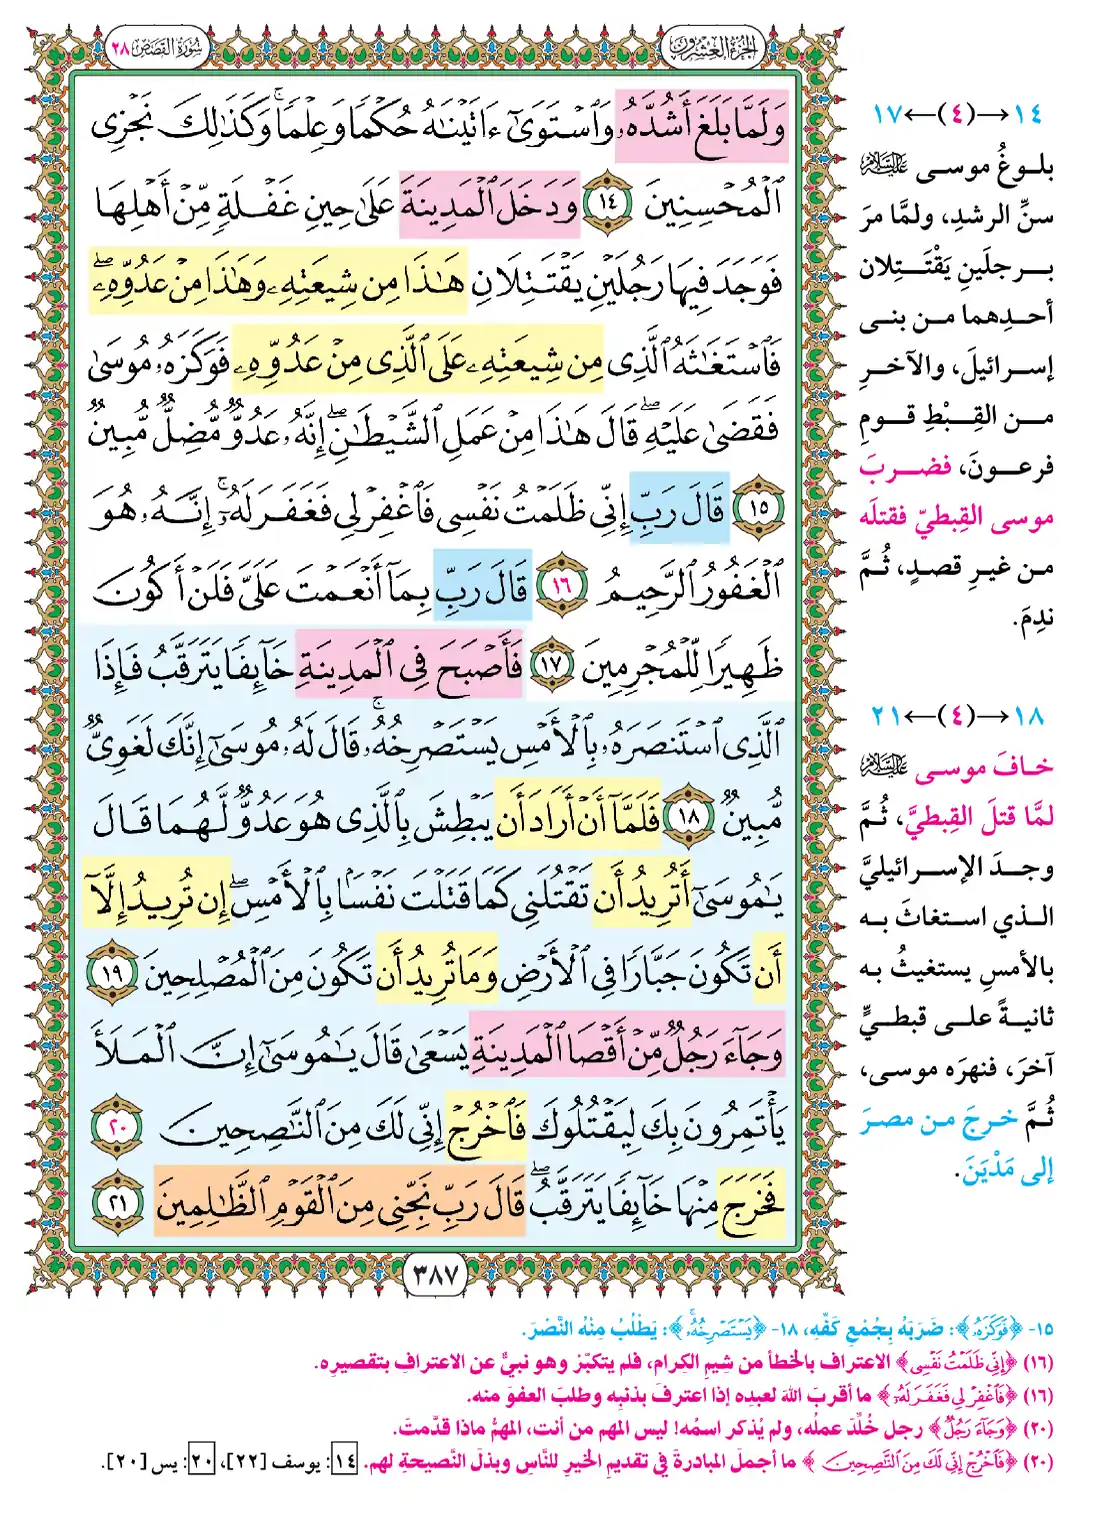 سُورَةُ القَصَصِ ٢٨
الجُزْءُ العِشْرُونَ
وَلَمَّا بَلَغَ أَشُدَّهُۥ وَٱسْتَوَىٰٓ ءَاتَيْنَٰهُ حُكْمًا وَعِلْمًا ۚ وَكَذَٰلِكَ نَجْزِى
ٱلْمُحْسِنِينَ ١٤ وَدَخَلَ ٱلْمَدِينَةَ عَلَىٰ حِينِ غَفْلَةٍ مِّنْ أَهْلِهَا
فَوَجَدَ فِيهَا رَجُلَيْنِ يَقْتَتِلَانِ هَٰذَا مِن شِيعَتِهِۦ وَهَٰذَا مِنْ عَدُوِّهِۦ ۖ
فَٱسْتَغَٰثَهُ ٱلَّذِى مِن شِيعَتِهِۦ عَلَى ٱلَّذِى مِنْ عَدُوِّهِۦ فَوَكَزَهُۥ مُوسَىٰ
فَقَضَىٰ عَلَيْهِ ۖ قَالَ هَٰذَا مِنْ عَمَلِ ٱلشَّيْطَٰنِ ۖ إِنَّهُۥ عَدُوٌّ مُّضِلٌّ مُّبِينٌ
١٥ قَالَ رَبِّ إِنِّى ظَلَمْتُ نَفْسِى فَٱغْفِرْ لِى فَغَفَرَ لَهُۥٓ ۚ إِنَّهُۥ هُوَ
ٱلْغَفُورُ ٱلرَّحِيمُ ١٦ قَالَ رَبِّ بِمَآ أَنْعَمْتَ عَلَىَّ فَلَنْ أَكُونَ
ظَهِيرًا لِّلْمُجْرِمِينَ ١٧ فَأَصْبَحَ فِى ٱلْمَدِينَةِ خَآئِفًا يَتَرَقَّبُ فَإِذَا
ٱلَّذِى ٱسْتَنصَرَهُۥ بِٱلْأَمْسِ يَسْتَصْرِخُهُۥ ۚ قَالَ لَهُۥ مُوسَىٰٓ إِنَّكَ لَغَوِىٌّ
مُّبِينٌ ١٨ فَلَمَّآ أَنْ أَرَادَ أَن يَبْطِشَ بِٱلَّذِى هُوَ عَدُوٌّ لَّهُمَا قَالَ
يَٰمُوسَىٰٓ أَتُرِيدُ أَن تَقْتُلَنِى كَمَا قَتَلْتَ نَفْسًۢا بِٱلْأَمْسِ ۖ إِن تُرِيدُ إِلَّآ
أَن تَكُونَ جَبَّارًا فِى ٱلْأَرْضِ وَمَا تُرِيدُ أَن تَكُونَ مِنَ ٱلْمُصْلِحِينَ ١٩
وَجَآءَ رَجُلٌ مِّنْ أَقْصَا ٱلْمَدِينَةِ يَسْعَىٰ قَالَ يَٰمُوسَىٰٓ إِنَّ ٱلْمَلَأَ
يَأْتَمِرُونَ بِكَ لِيَقْتُلُوكَ فَٱخْرُجْ إِنِّى لَكَ مِنَ ٱلنَّٰصِحِينَ ٢٠
فَخَرَجَ مِنْهَا خَآئِفًا يَتَرَقَّبُ ۖ قَالَ رَبِّ نَجِّنِى مِنَ ٱلْقَوْمِ ٱلظَّٰلِمِينَ ٢١
٣٨٧
١٤→(٤)←١٧
بلوغُ موسى عليه السلام
سنِّ الرشدِ، ولمَّا مرَ
برجلَينِ يَقْتَتِلان
أحدِهما من بني
إسرائيلَ، والآخرِ
من القِبْطِ قومِ
فرعونَ، فضربَ
موسى القِبطيّ فقتلَه
من غيرِ قصدٍ، ثُمَّ
ندِمَ.
١٨→(٤)←٢١
خافَ موسى عليه السلام
لمَّا قتلَ القِبطيَّ، ثُمَّ
وجدَ الإسرائيليَّ
الذي استغاثَ به
بالأمسِ يستغيثُ به
ثانيةً على قبطيٍّ
آخرَ، فنهرَه موسى،
ثُمَّ خرجَ من مصرَ
إلى مَدْيَنَ.
١٥- ﴿فَوَكَزَهُۥ﴾: ضَرَبَهُ بِجُمْعِ كَفِّهِ، ١٨- ﴿يَسْتَصْرِخُهُۥ ۚ﴾: يَطْلُبُ مِنْهُ النَّصْرَ.
(١٦) ﴿إِنِّى ظَلَمْتُ نَفْسِى﴾ الاعتراف بالخطأ من شيمِ الكرام، فلم يتكبّر وهو نبيٌّ عن الاعترافِ بتقصيرِه.
(١٦) ﴿فَٱغْفِرْ لِى فَغَفَرَ لَهُۥٓ﴾ ما أقربَ اللهَ لعبدِه إذا اعترفَ بذنبِه وطلبَ العفوَ منه.
(٢٠) ﴿وَجَآءَ رَجُلٌ﴾ رجل خُلِّدَ عملُه، ولم يُذكر اسمُه! ليس المهم من أنت، المهمُّ ماذا قدَّمتَ.
(٢٠) ﴿فَٱخْرُجْ إِنِّى لَكَ مِنَ ٱلنَّٰصِحِينَ﴾ ما أجملَ المبادرةَ في تقديمِ الخيرِ للنَّاسِ وبذلَ النَّصيحةِ لهم. ١٤: يوسف [٢٢]، ٢٠: يس [٢٠].